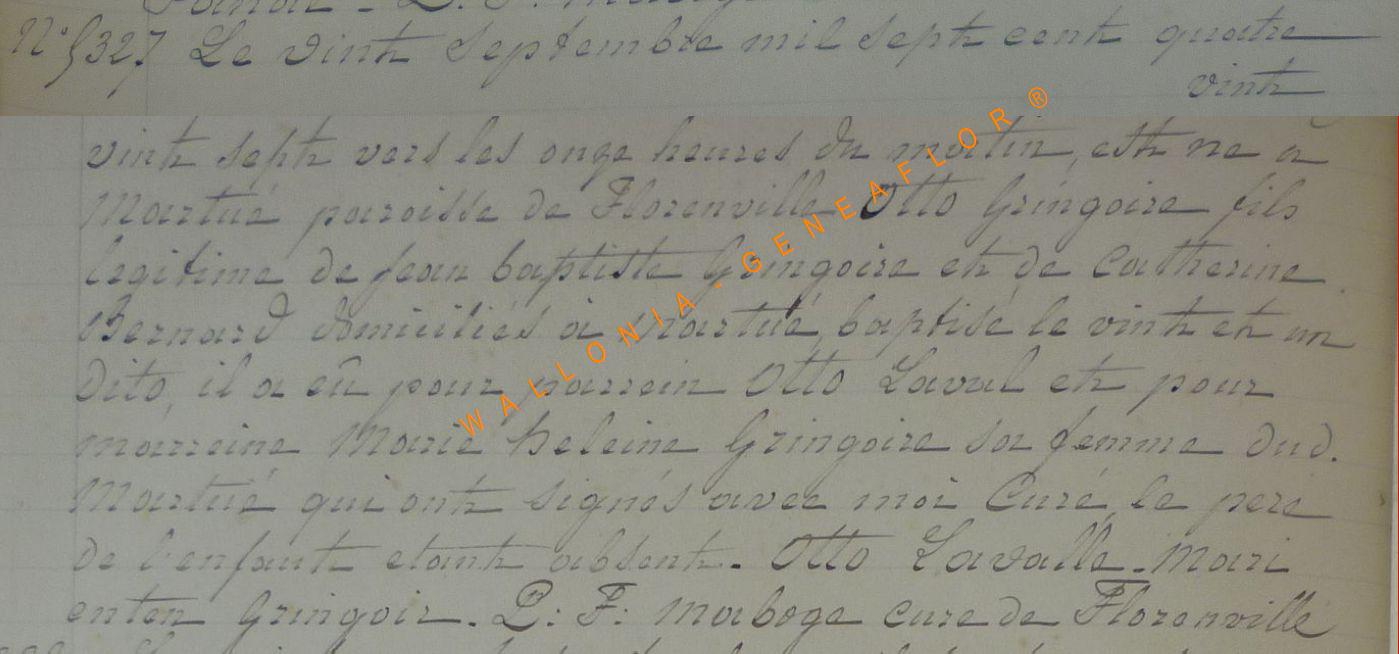 N° 5327 Le vint septembre mil sept cent quatre
vint
vint sept vers les onze heures du matin, est ne a
Martué paroisse de Florenville Otto Gringoire fils
legitime de jean baptiste Gringoire et de Catherine
Bernard domiciliés à Martué, baptisé le vint et un
dito, il a eû pour parrein Otto Laval et pour
marreine Marie heleine Gringoire sa femme dud.
Martué qui ont signés avec moi Curé, le pere
de l'enfant etant absent. Otto Lavalle. Mari
enten Gringoir. P: F: Maboge cure de Florenville
WALLONIA - GENEAFLOR ®